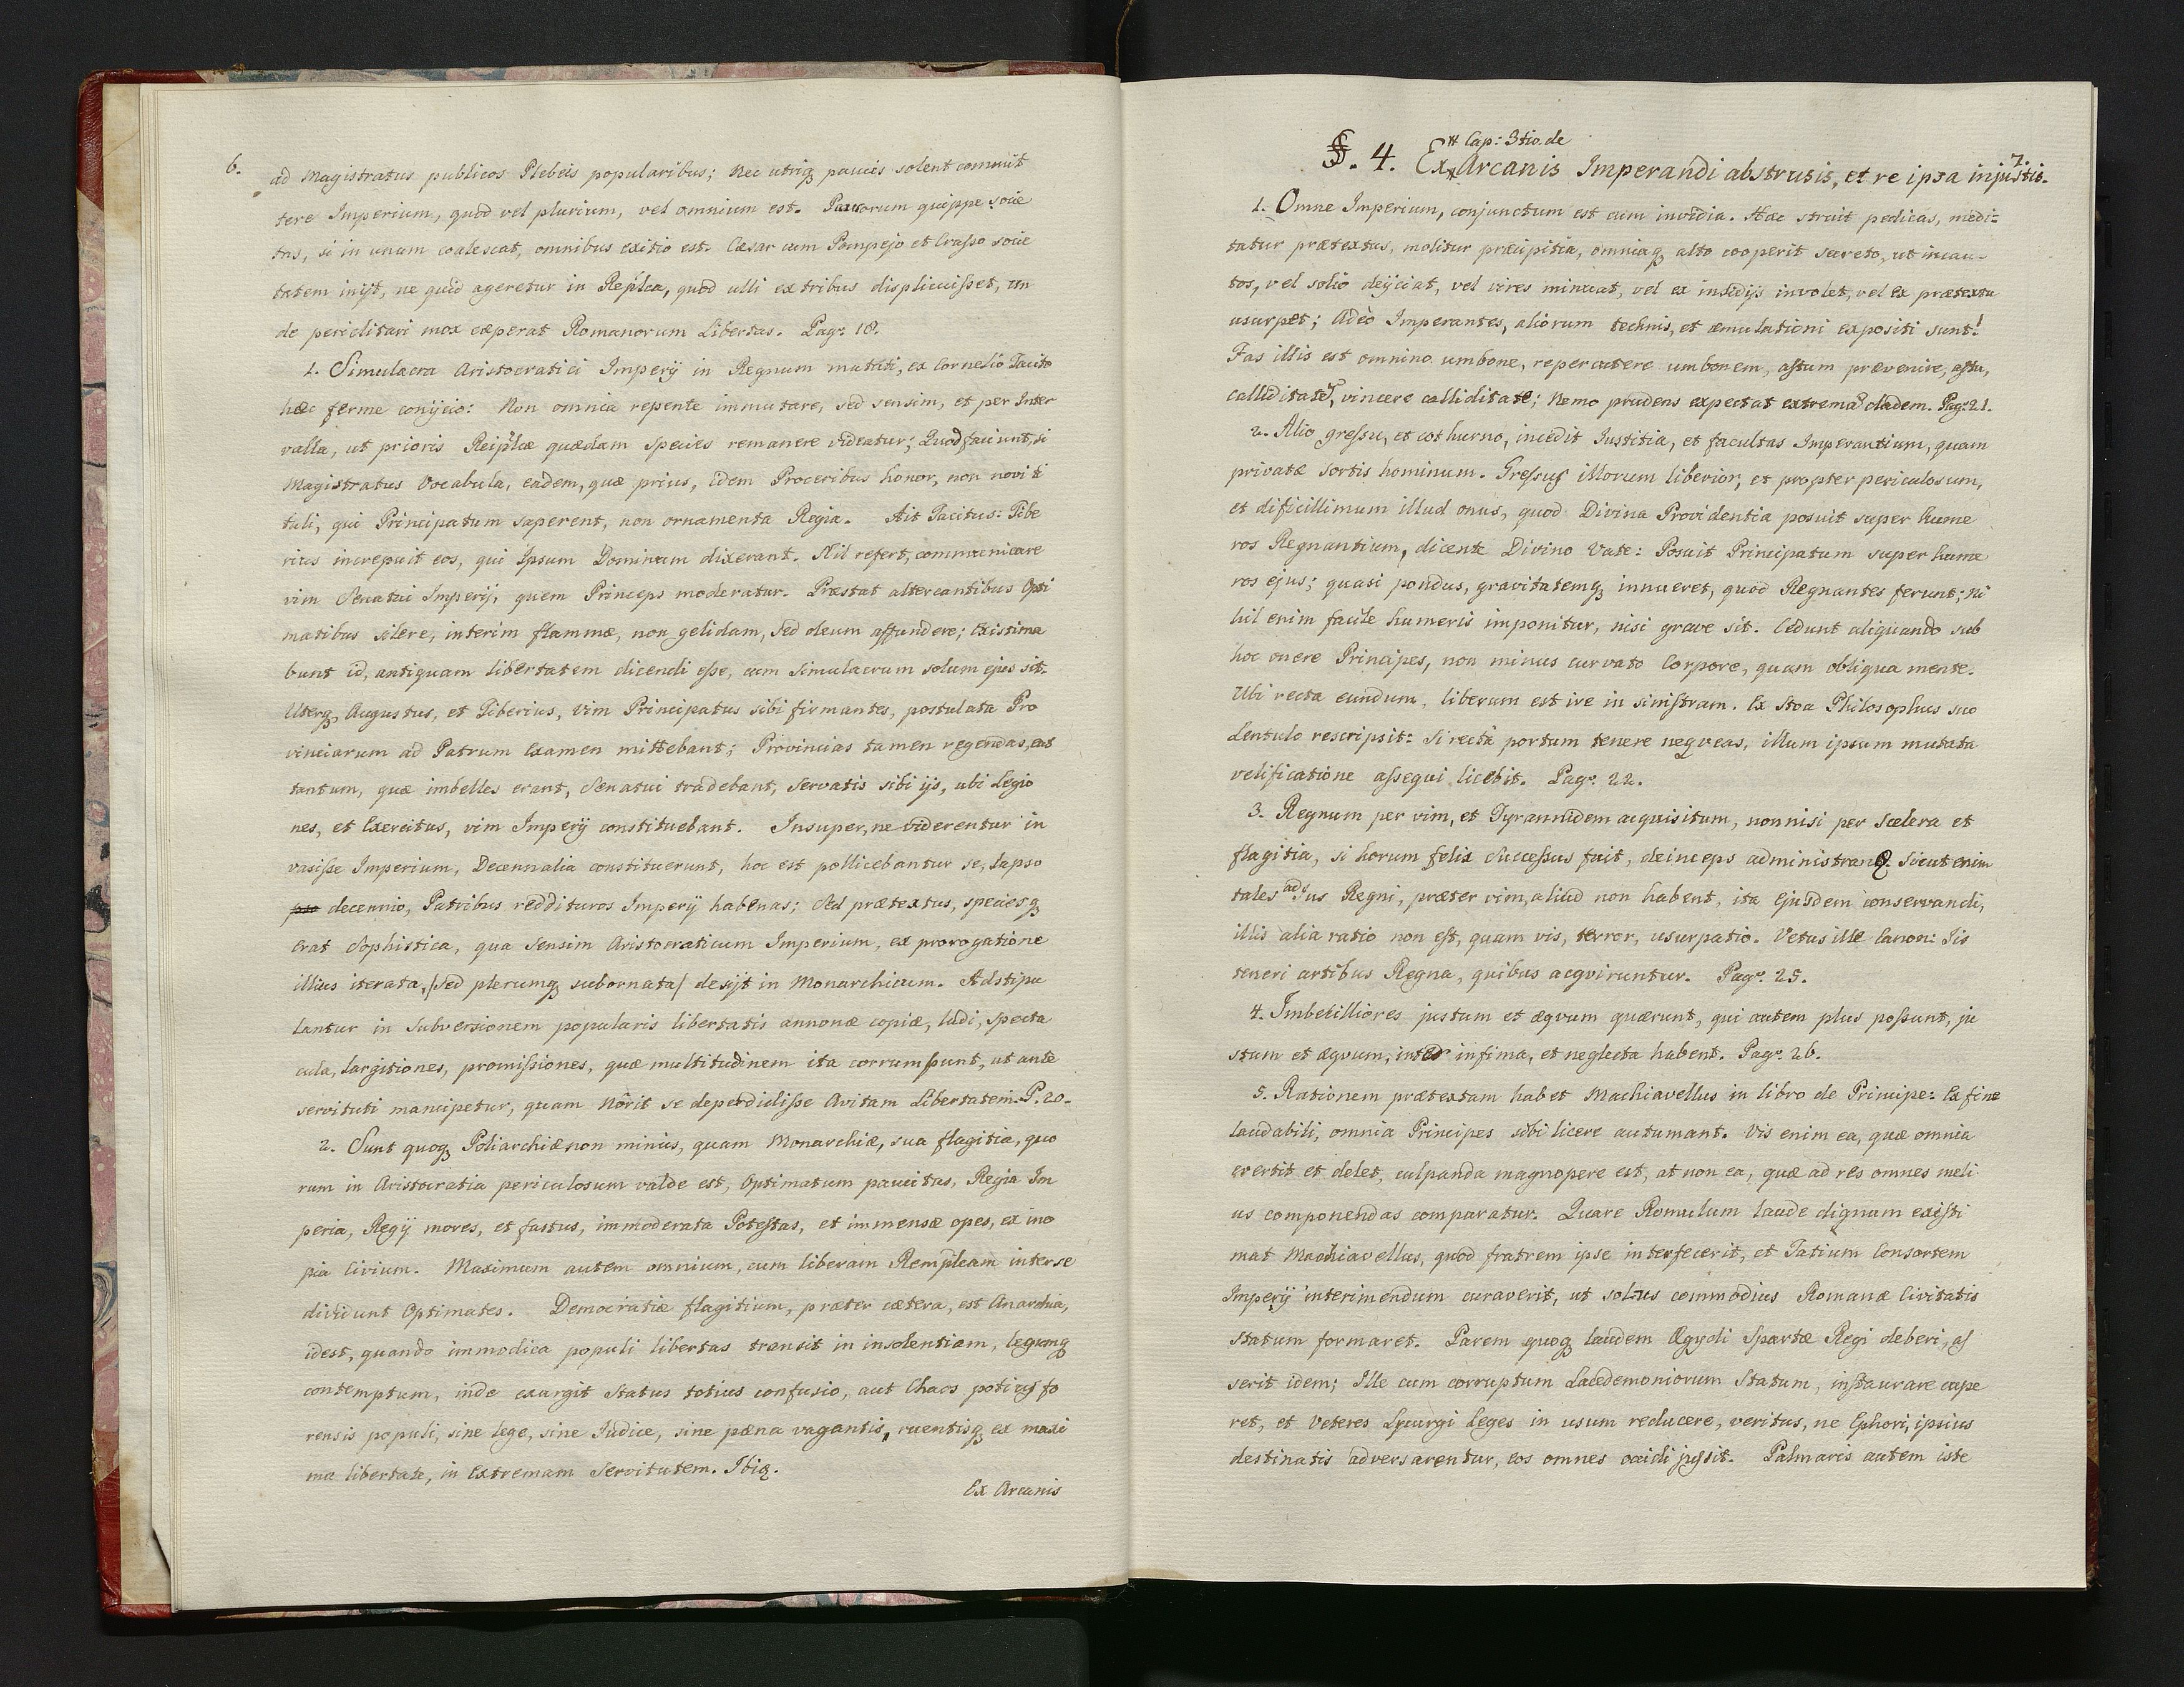 6.
ad Magistratus publicos Plebeis popularibus; Nec utriq; paucis solent commit
tere Imperium, quod vel plurium, vel omnium est. Paucorum quippe socie
tas, si in unam coalescat, omnibus exitio est. Cæsar cum Pompejo et Crasso socie
tatem inijt, ne quid ageretur in Replca, quod ulli ex tribus displicuisset, un
de periclitari mox cæperat Romanorum Libertas. Pag: 18.
1. Simulacra Aristocratici Imperij in Regnum mutati, ex Cornelio Tacito
hæc ferme conijcio: Non omnia repente immutare, sed sensim, et per Inter
valla, ut prioris Reiplcæ quædam species remanere videatur; Quod faciunt, si
Magistratus Vocabula, eadem, quæ prius, idem Proceribus honor, non novi ti
tuli, qui Principatum saperent, non ornamenta Regia. Ait Tacitus: Tibe
rius increpuit eos, qui Ipsum Dominum dixerant. Nil refert, communicare
vim Senatui Imperij, quem Princeps moderatur. Præstat altercantibus Opti
matibus silere, interim flammæ, non gelidam, sed oleum affundere; Existima
bunt id, antiquam libertatem dicendi esse, cum Simulacrum solum ejus sit.
Uterq; Augustus, et Tiberius, vim Principatus sibi firmantes, postulata Pro
vinciarum ad Patrum Examen mittebant; Provincias tamen regendas, eas
tantum, quæ imbelles erant, Senatui tradebant, servatis sibi ijs, ubi Legio
nes, et Exercitus, vim Imperij constituebant. Insuper, ne viderentur in
vasisse Imperium, Decennalia constituerunt, hoc est pollicebantur se, lapso
decennio, Patribus reddituros Imperij habenas; Sed prætextus, speciesq;
erat Sophistica, qua sensim Aristocraticum Imperium, ex prorogatione
illius iterata, /sed plerumq; subornata/ desijt in Monarchicum. Adstipu
lantur in subversionem popularis libertatis annonæ copiæ, ludi, specta
cula, largitiones, promissiones, quæ multitudinem ita corrumpunt, ut ante
servituti mancipetur, quam nôrit se deperdidisse Avitam Libertatem. P. 20.
2. Sunt quoq; Poliarchiæ non minus, quam Monarchiæ, sua flagitia, quo
rum in Aristocratia periculosum valde est, Optimatum paucitas, Regia Im
peria, Regij mores, et fastus, immoderata Potestas, et immensæ opes, ex ino
pia Civium. Maximum autem omnium, cum liberam Remplcam inter se
dividunt Optimates. Democratiæ flagitium, præter cætera, est Anarchia,
idest, quando immodica populi libertas transit in insolentiam, legumq;
contemptum, inde exurgit status totius confusio, aut Chaos potius fo
rensis populi, sine lege, sine Iudice, sine pæna vagantis, ruentisq; ex maxi
ma libertate, in Extremam Servitutem. Ibiq.
Ex Arcanis
7.
# Cap: 3tio. de
§. 4. Ex # Arcanis Imperandi abstrusis, et re ipsa injustis.
1. Omne Imperium, conjunctum est cum invidia. Hæc struit pedicas, medi=
tatur prætextus, molitur præcipitia, omniaq; alto cooperit secreto, ut incau-
tos, vel solio dejiciat, vel vires minuat, vel ex insidijs involet, vel Ex prætextu
usurpet; Adeò Imperantes, aliorum technis, et æmulationi expositi sunt!
Fas illis est omnino umbone, repercutere umbonem, astum prævenire, astu,
calliditatē, vincere calliditate; Nemo prudens expectat extremā cladem. Pag: 21.
2. Alio gressu, et cothurno, incedit Iustitia, et facultas Imperantium, quam
privatæ sortis hominum. Gressus illorum liberior, et propter periculosum,
et dificillimum illud onus, quod Divina Providentia posuit super hume
ros Regnantium, dicente Divino Vate: Posuit Principatum super hume
ros ejus; quasi pondus, gravitatemq; innueret, quod Regnantes ferunt; Ni
hil enim facile humeris imponitur, nisi grave sit. Cedunt aliquando sub
hoc onere Principes, non minus curvato Corpore, quam obliqua mente.
Ubi recta eundum, liberum est ire in sinistram. Ex Stoa Philosophus suo
Lentulo rescripsit: Si rectà portum tenere neqveas, illum ipsum mutata
velificatione assequi licebit. Pag: 22.
3. Regnum per vim, et Tyrannidem acquisitum, nonnisi per Scelera et
flagitia, si horum felix Successus fuit, deinceps administran Sicut enim
tales ad Ius Regni, præter vim, aliud non habent, ita Ejusdem conservandi,
illis alia ratio non est, quam vis, terror, usurpatio. Vetus ille Canon: Iis
teneri artibus Regna, quibus acqviruntur. Pag: 25.
4. Imbecilliores justum et æqvum quærunt, qui autem plus possunt, ju
stum et æqvum, inter infima, et neglecta habent. Pag: 26.
5. Rationem prætextam habet Machiavellus in libro de Principe: Ex fine
laudabili, omnia Principes sibi licere autumant. Vis enim ea, quæ omnia
evertit et delet, culpanda magnopere est, at non ea, quæ ad res omnes meli
us componendas comparatur. Quare Romulum laude dignum existi
mat Machiavellus, quod fratrem ipse interfecerit, et Tatium Consortem
Imperij interimendum curaverit, ut solus commodius Romanæ Civitatis
statum formaret. Parem quoq; laudem Ægydi Spartæ Regi deberi, as
serit idem; Ille cum corruptum Lacedemoniorum Statum, instaurare cupe
ret, et Veteres Lycurgi Leges in usum reducere, veritus, ne Ephori, ipsius
destinatis adversarentur, eos omnes occidi jussit. Palmaris autem iste